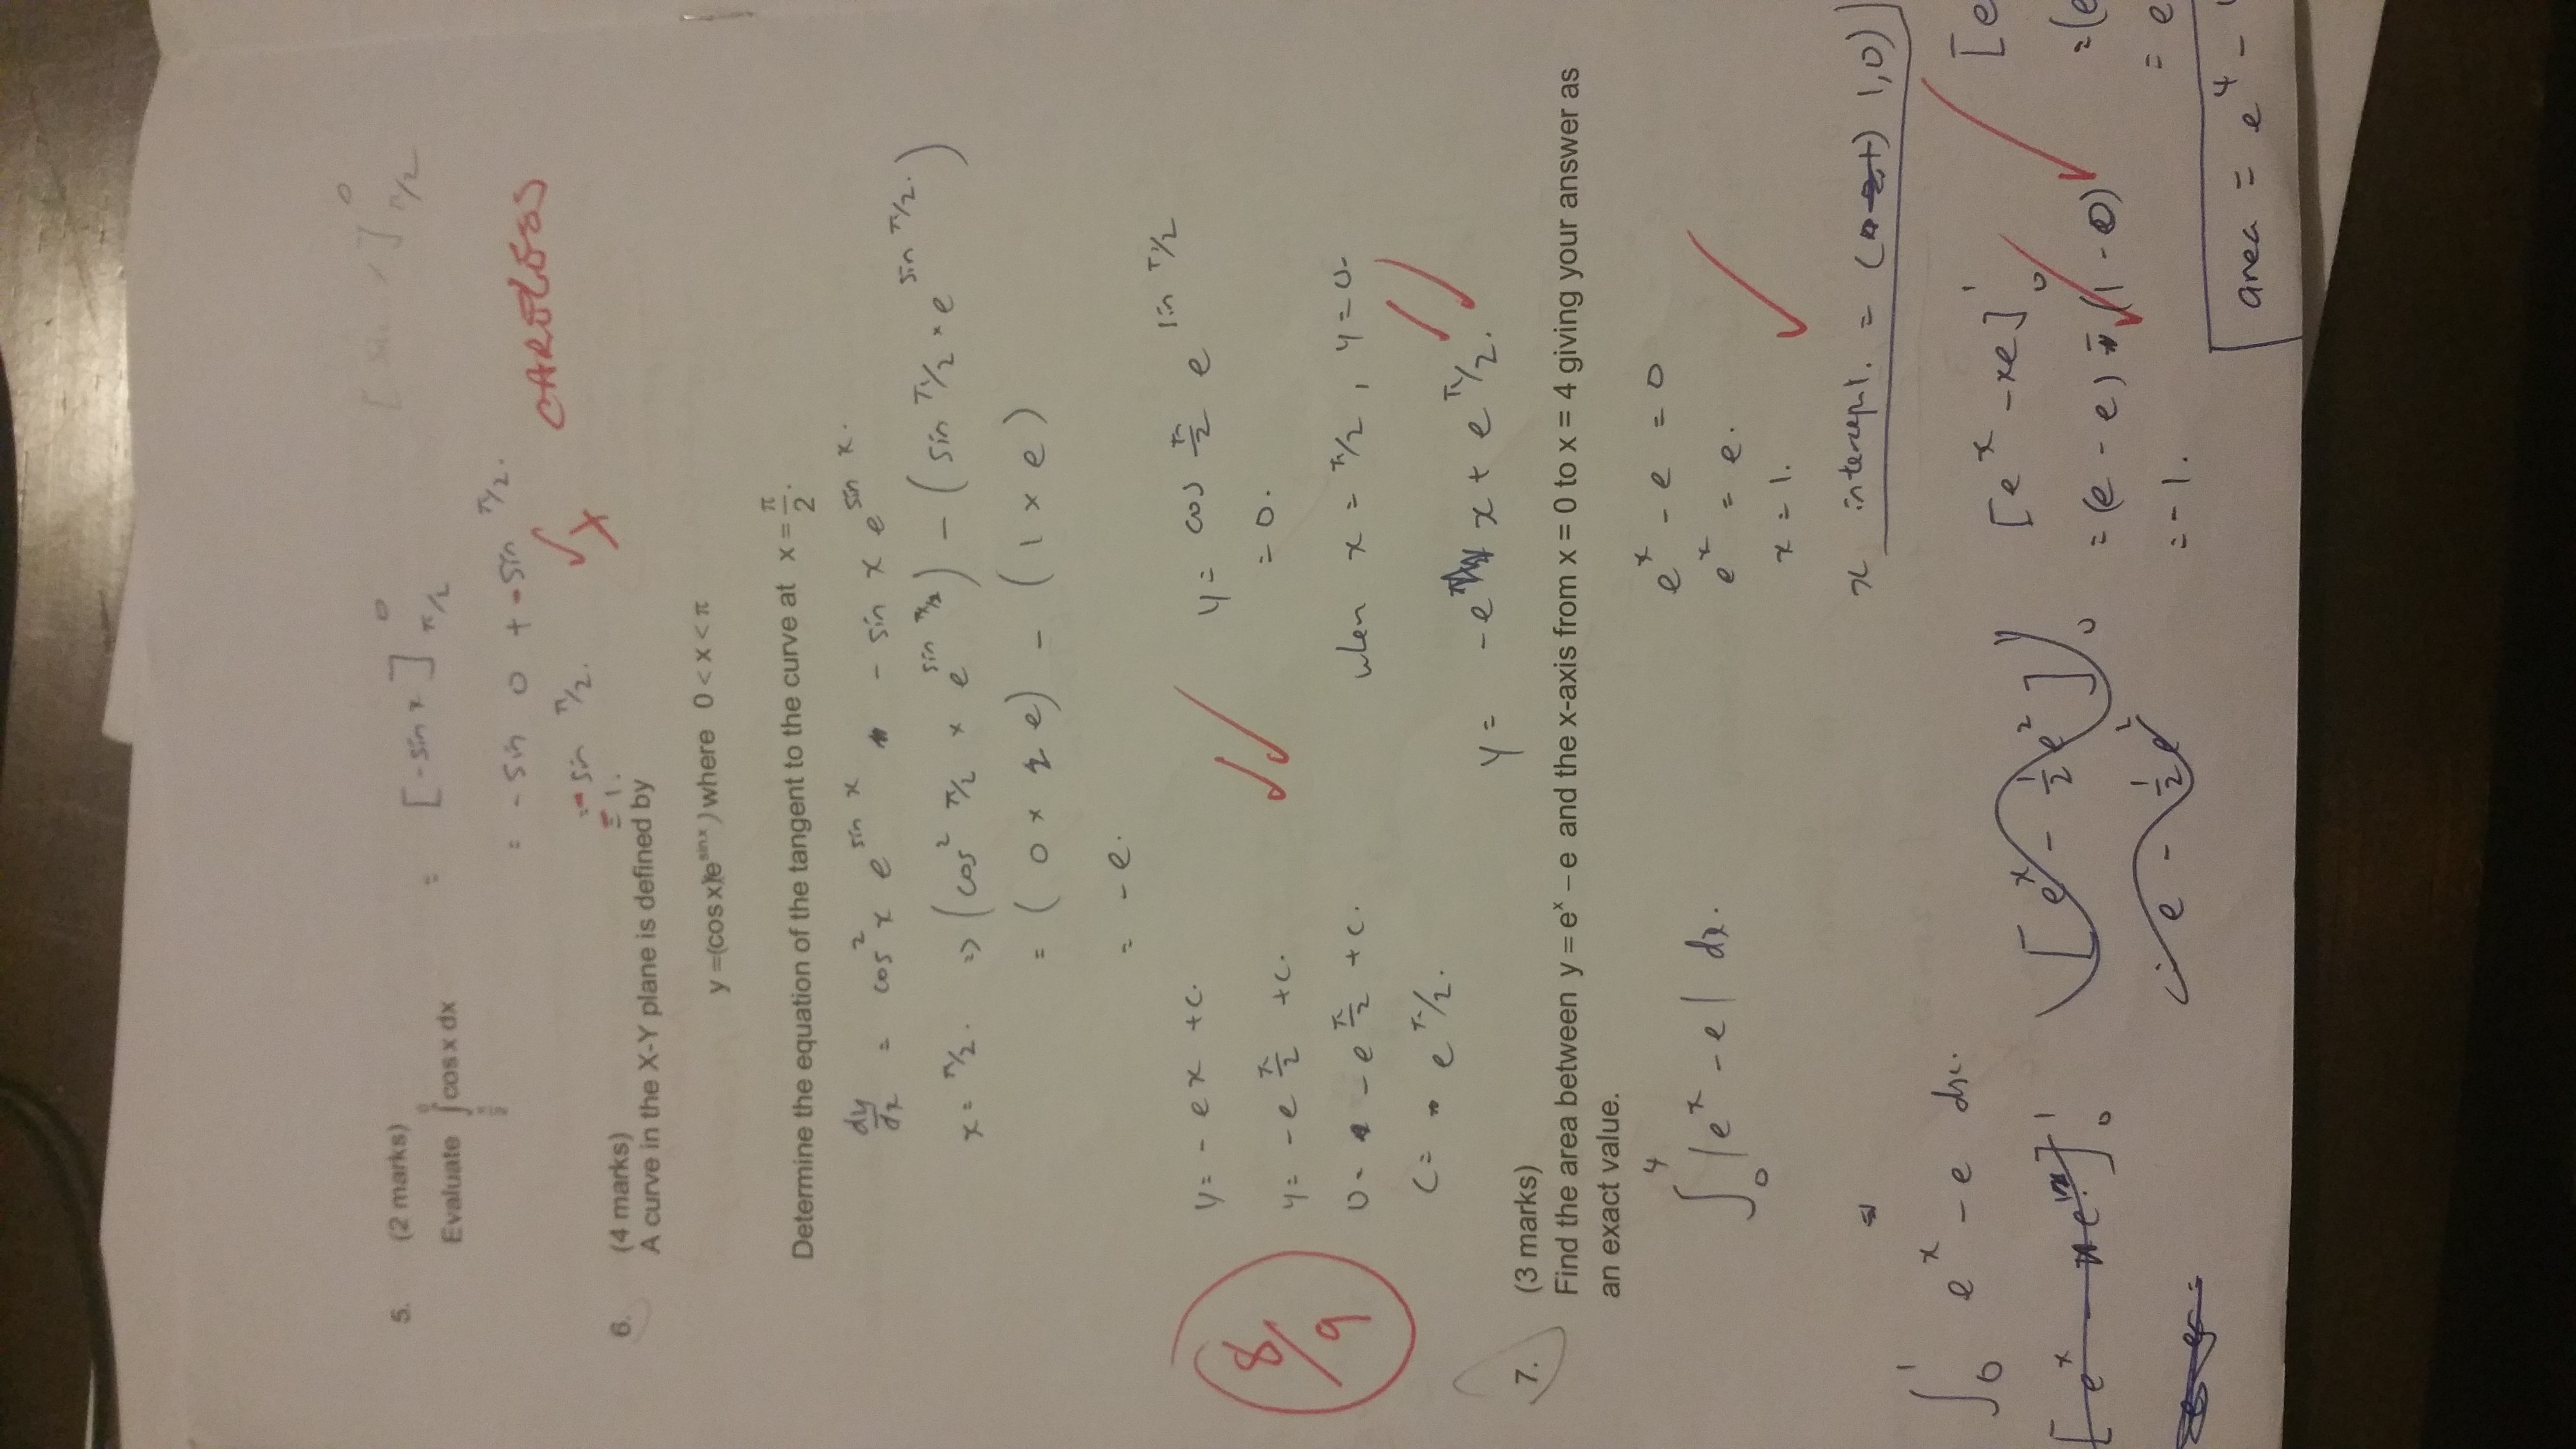 5. (2 marks)
Evaluate ∫ cos x dx = [-sin x]⁰π/2 [sin x]⁰π/2
= -sin 0 + -sin π/2.
= - sin π/2.
= 1.
CARELESS
6. (4 marks)
A curve in the X-Y plane is defined by
y =(cos x)(e^sin x) where 0 < x < π
Determine the equation of the tangent to the curve at x = π/2.
dy/dx = cos² x e^sin x - sin x e^sin x.
x = π/2. => (cos² π/2 × e^sin π/2) - (sin π/2 × e^sin π/2.)
= ( 0 × e) - ( 1 × e )
= -e.
y = - e x + c.
y = cos π/2 e^sin π/2
= 0.
y = -e π/2 + c.
8/9
0 = -e π/2 + c.
when x = π/2, y = 0.
c = e π/2.
y = -e x + e π/2.
7. (3 marks)
Find the area between y = eˣ – e and the x-axis from x = 0 to x = 4 giving your answer as
an exact value.
∫₀⁴ |eˣ - e| dx.
eˣ - e = 0
eˣ = e.
x = 1.
x intercept. = ( 1,0)
∫₀¹ eˣ - e dx.
[eˣ - ½e²]₀
e - ½e²
[eˣ - xe]₀¹
= (e - e) - (1 - 0)
= -1.
[e
= (e
= e
area = e⁴ -